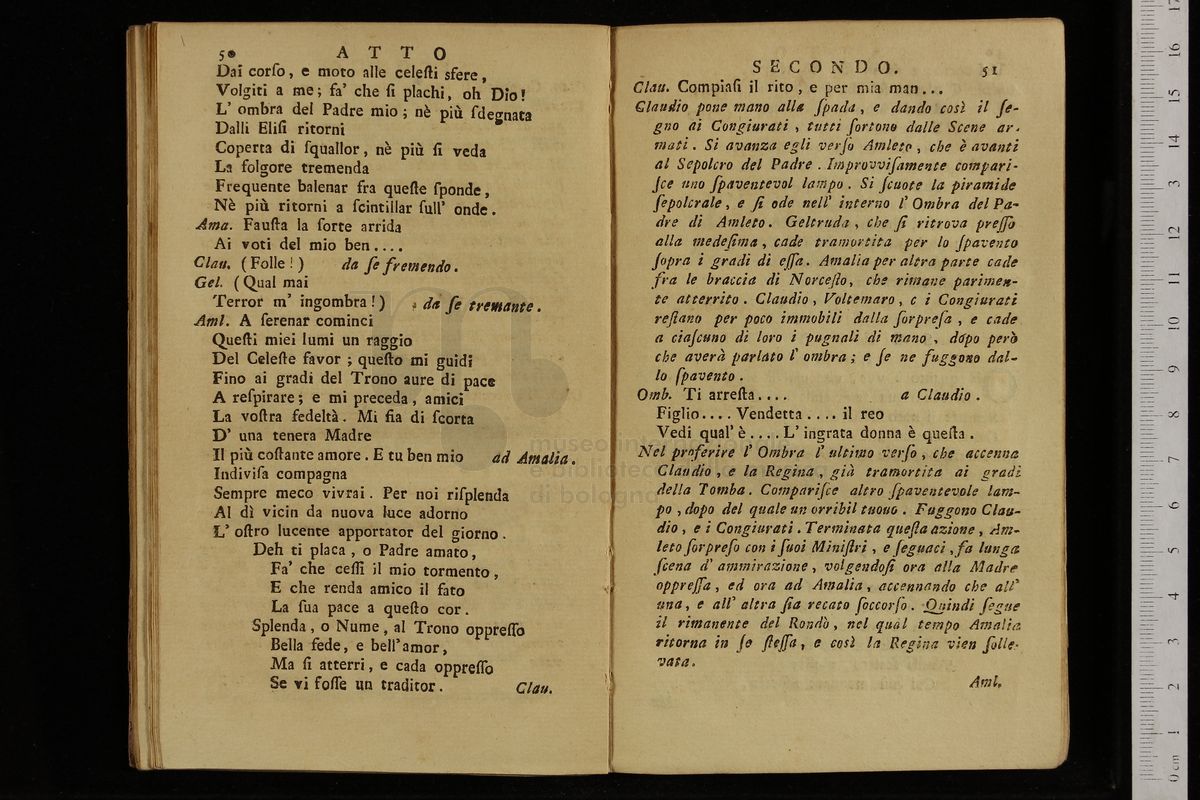 50 ATTO
Dai corſo, e moto alle celeſti sfere,
Volgiti a me; fa' che ſi plachi, oh Dio!
L' ombra del Padre mio; nè più ſdegnata
Dalli Eliſi ritorni
Coperta di ſquallor, nè più ſi veda
La folgore tremenda
Frequente balenar fra queſte ſponde,
Nè più ritorni a ſcintillar full' onde.
Ama. Fauſta la ſorte arrida
Ai voti del mio ben....
Clau. (Folle!) da ſe fremendo.
Gel. (Qual mai
Terror m' ingombra!) da ſe tremante.
Aml. A ſerenar cominci
Queſti miei lumi un raggio
Del Celeſte favor; queſto mi guidi
Fino ai gradi del Trono aure di pace
A reſpirare; e mi preceda, amici
La voſtra fedeltà. Mi ſia di ſcorta
D' una tenera Madre
Il più coſtante amore. E tu ben mio ad Amalia.
Indiviſa compagna
Sempre meco vivrai. Per noi riſplenda
Al dì vicin da nuova luce adorno
L' oſtro lucente apportator del giorno.
Deh ti placa, o Padre amato,
Fa' che ceſſi il mio tormento,
E che renda amico il fato
La ſua pace a queſto cor.
Splenda, o Nume, al Trono oppreſſo
Bella fede, e bell'amor,
Ma ſi atterri, e cada oppreſſo
Se vi foſſe un traditor. Clau.
SECONDO. 51
Clau. Compiaſi il rito, e per mia man...
Claudio pone mano alla ſpada, e dando così il ſe-
gno ai Congiurati, tutti ſortono dalle Scene ar-
mati. Si avanza egli verſo Amleto, che è avanti
al Sepolcro del Padre. Improvviſamente compari-
ſce uno ſpaventevol lampo. Si ſcuote la piramide
ſepolcrale, e ſi ode nell' interno l' Ombra del Pa-
dre di Amleto. Geltruda, che ſi ritrova preſſo
alla medeſima, cade tramortita per lo ſpavento
ſopra i gradi di eſſa. Amalia per altra parte cade
fra le braccia di Norceſto, che rimane parimen-
te atterrito. Claudio, Voltemaro, e i Congiurati
reſtano per poco immobili dalla ſorpreſa, e cade
a ciaſcuno di loro i pugnali di mano, dopo però
che averà parlato l' ombra; e ſe ne fuggono dal-
lo ſpavento.
Omb. Ti arreſta.... a Claudio.
Figlio.... Vendetta.... il reo
Vedi qual' è.... L' ingrata donna è queſta.
Nel proferire l' Ombra l' ultimo verſo, che accenna
Claudio, e la Regina, già tramortita ai gradi
della Tomba. Compariſce altro ſpaventevole lam-
po, dopo del quale un orribil tuouo. Fuggono Clau-
dio, e i Congiurati. Terminata queſta azione, Am-
leto ſorpreſo con i ſuoi Miniſtri, e ſeguaci, fa lunga
ſcena d' ammirazione, volgendoſi ora alla Madre
oppreſſa, ed ora ad Amalia, accennando che all'
una, e all' altra ſia recato ſoccorſo. Quindi ſegue
il rimanente del Rondò, nel quàl tempo Amalia
ritorna in ſe ſteſſa, e così la Regina vien ſolle-
vata.
Aml.